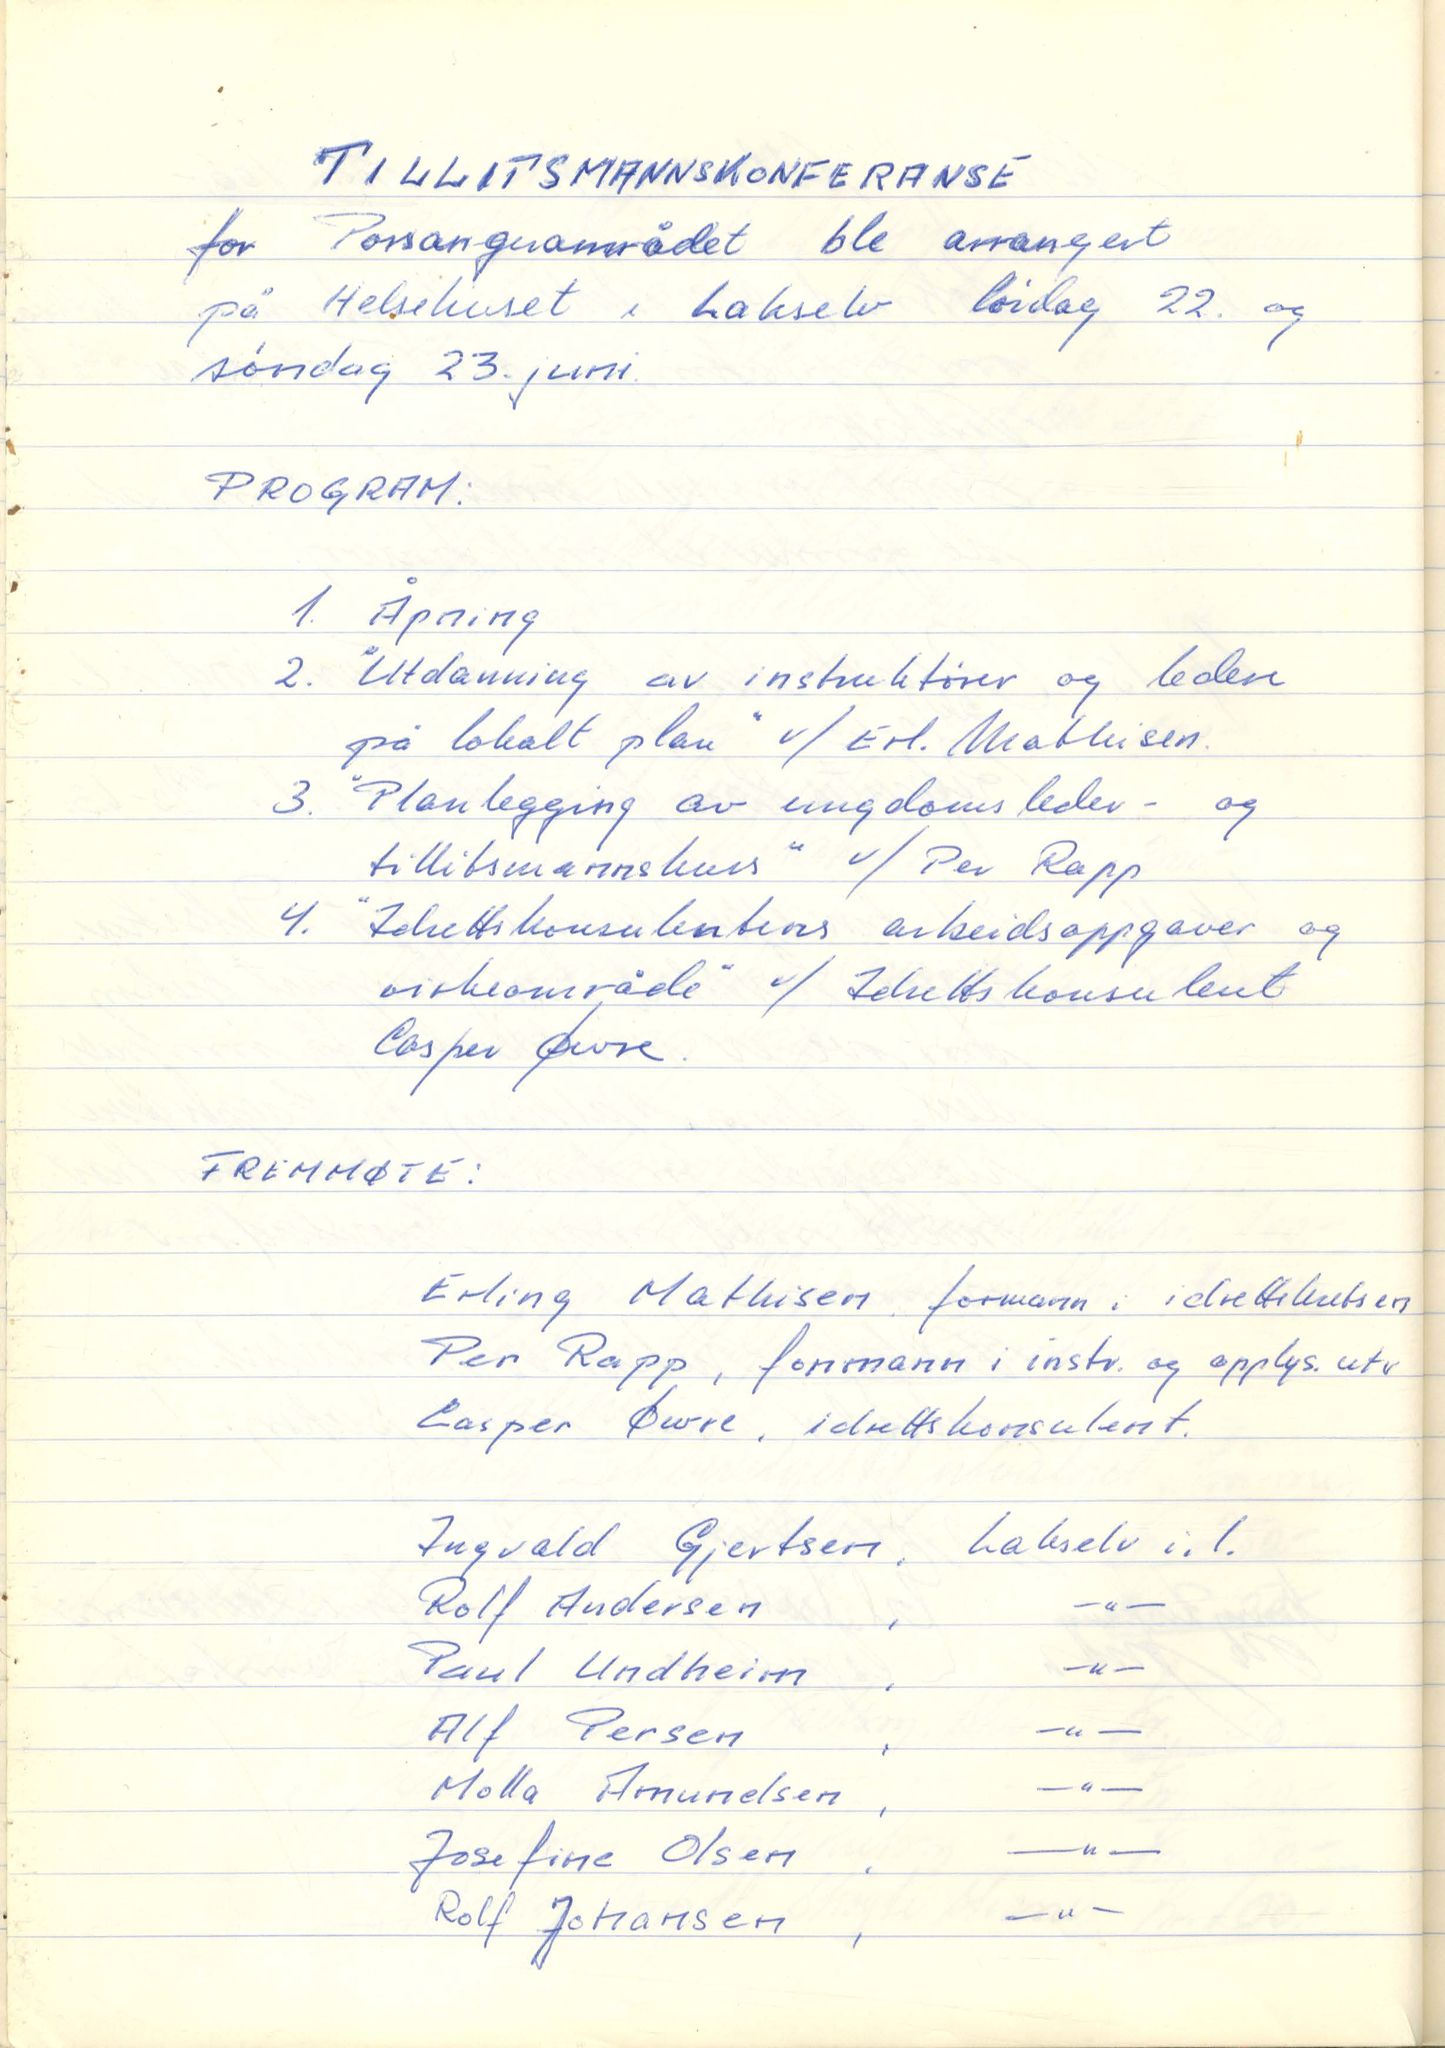 TILLITSMANNSKONFERANSE
for Porsangerområdet ble arrangert
på Helsehuset i Lakselv lördag 22. og
söndag 23. juni.
PROGRAM:
1. Åpning
2. "Utdanning av instruktörer og ledere
på lokalt plan" v/ Erl. Mathisen.
3. "Planlegging av ungdomsleder- og
tillitsmannskurs" v/ Per Rapp
4. "Idrettskonsulentens arbeidsoppgaver og
virkeområde" v/ Idrettskonsulent
Casper Øwre.
FREMMØTE:
Erling Mathisen, formann i idrettskretsen
Per Rapp, formann i instr. og opplys. utv
Casper Øwre, idrettskonsulent.
Ingvald Gjertsen, Lakselv i.l.
Rolf Andersen, —"—
Paul Undheim, —"—
Alf Persen, —"—
Molla Amundsen, —"—
Josefine Olsen, —"—
Rolf Johansen, —"—